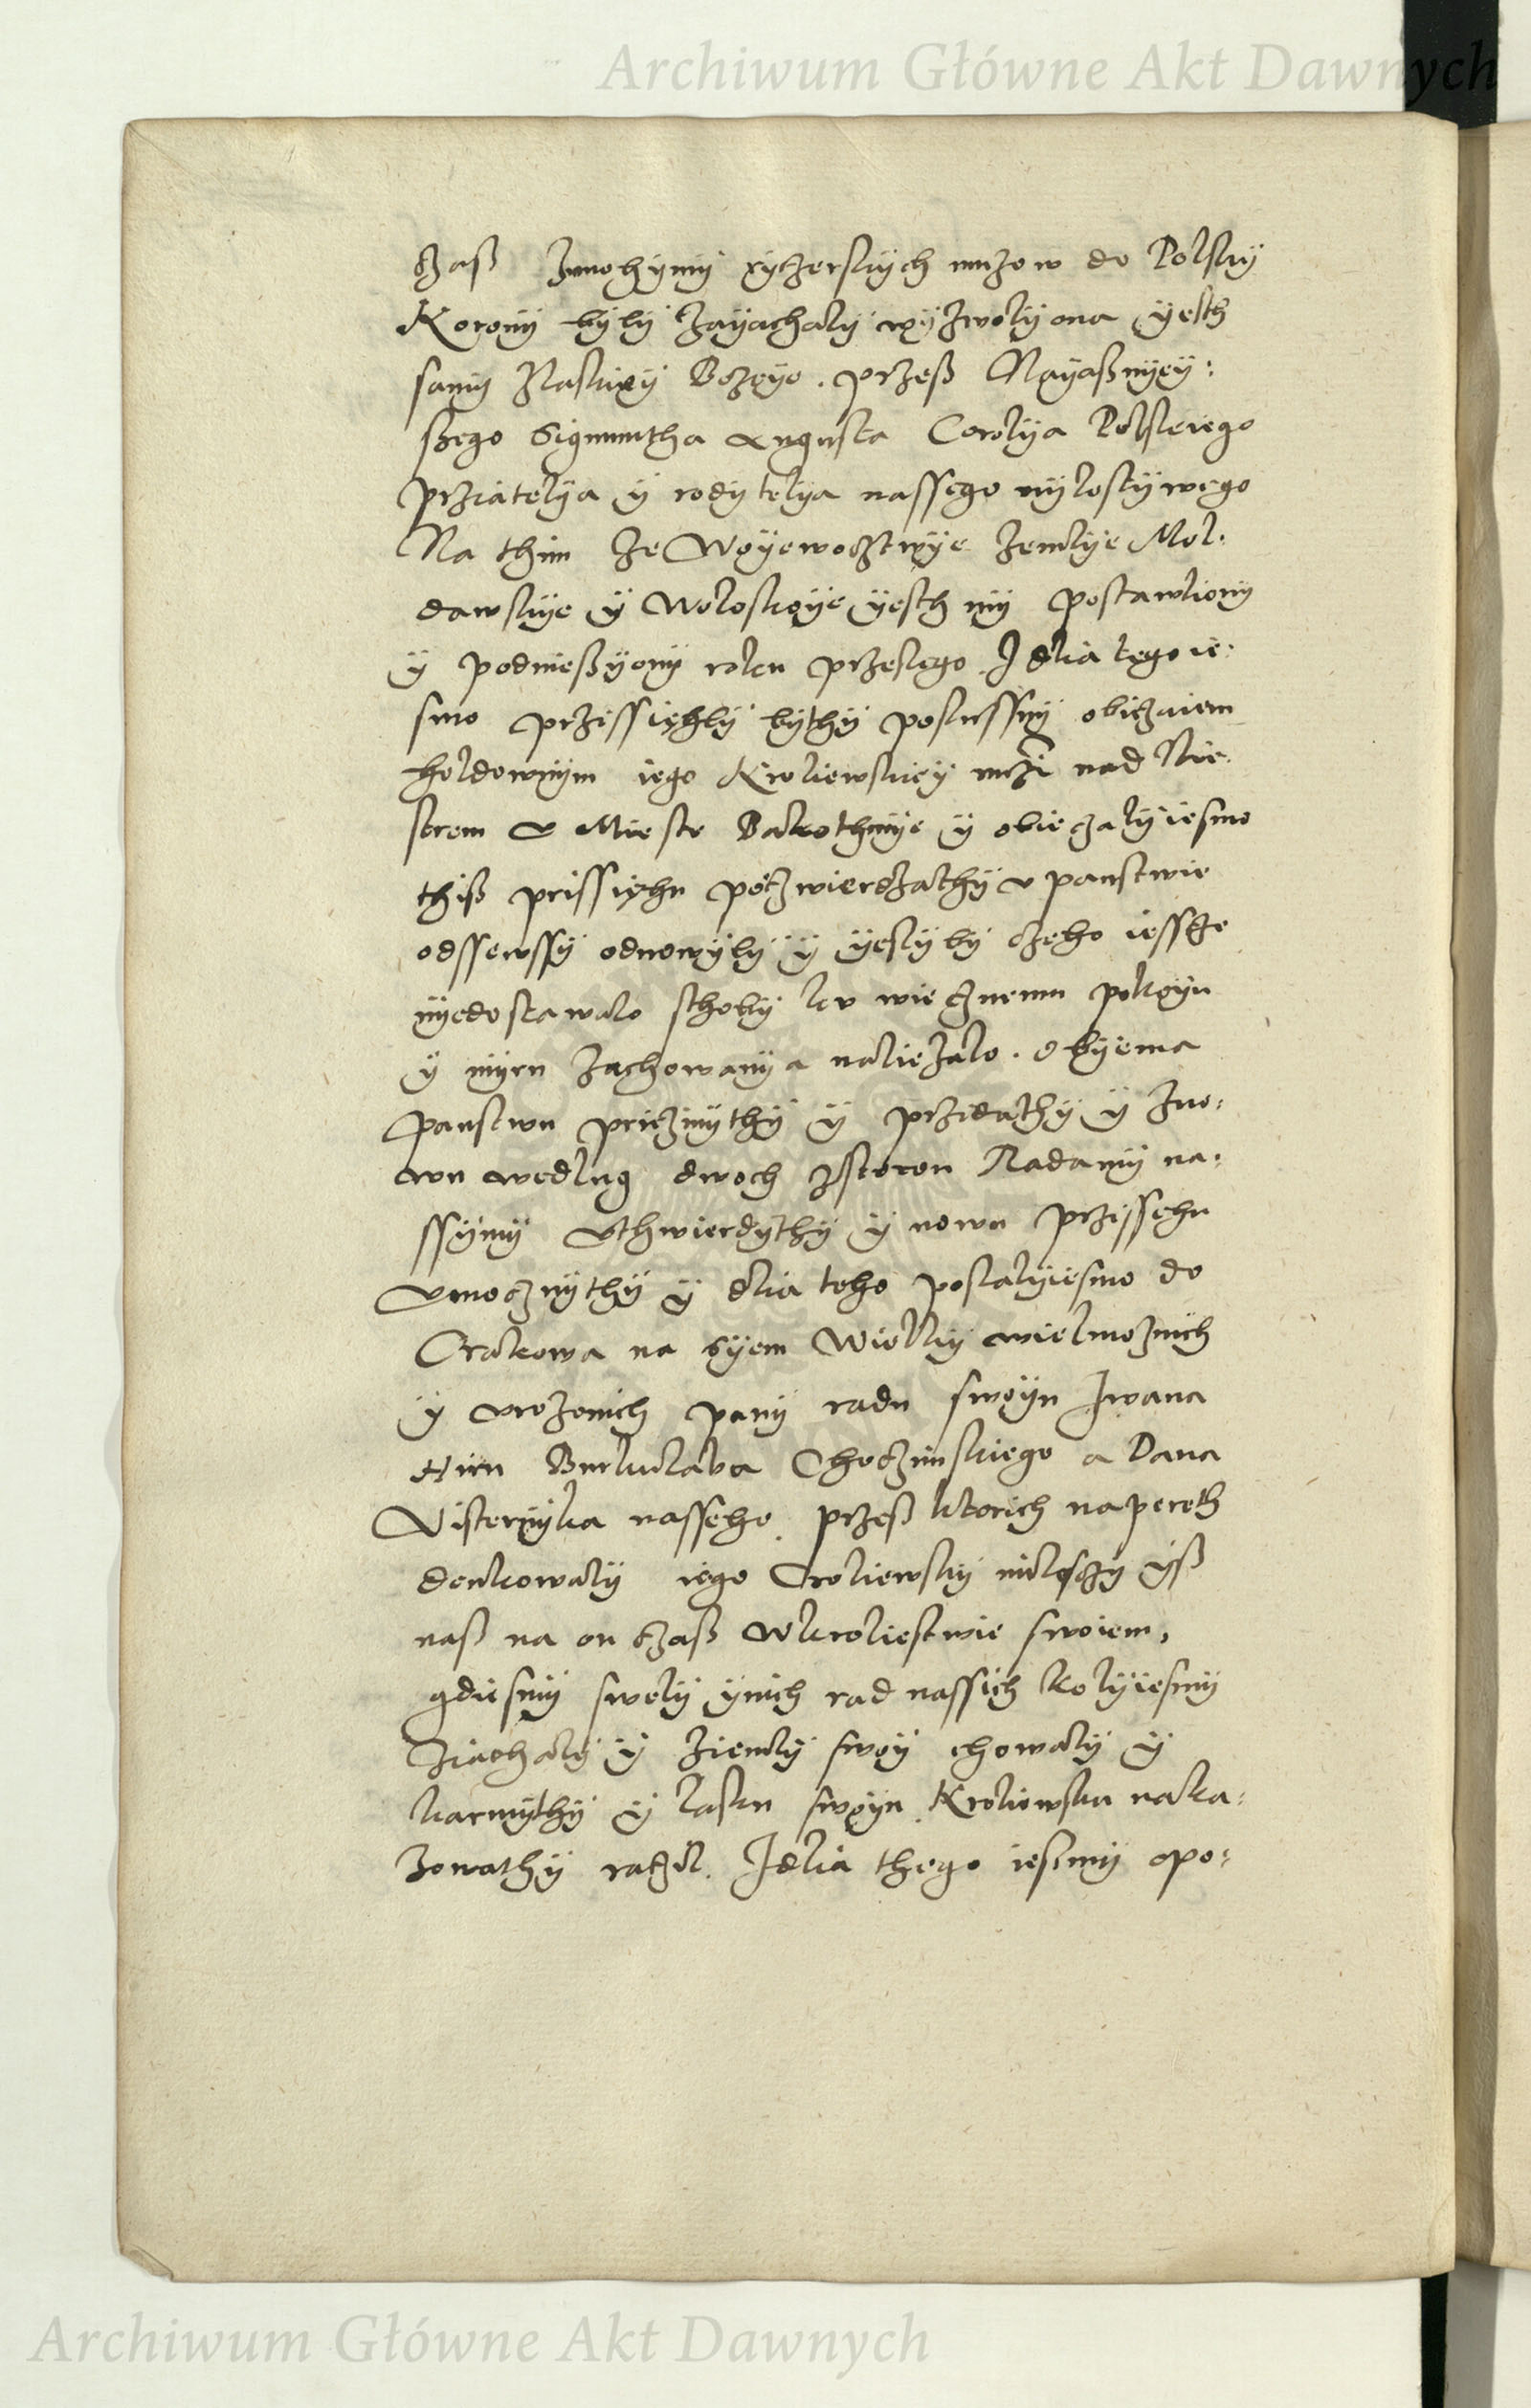 Archiwum Główne Akt Dawnych
czaß zmnohymy ryczerskych muzow do Polsky
Korony byly zayachaly wyzwolyona yesth
samy zlasky Bozeye. przeß Nayaßnyey:
ßego Sigmuntha Augusta Corolya Polskiego
prziatelya y rodytelya nassego mylostywego
Na thim ze Woyewodztwye zemlye Mol:
dawskye y Woloskoye yesth my postawliony
y podnießyony roku przeslego I dlia tego ie:
smo przissiehly bythy poslussny obiczaiem
holdownym iego Kroliewskiey mczi nad Nie:
strem v Mieste Bakothnye y obieczalyiesmo
thiß prissiehu potzwierdzathy v panstwie
odssewssy odnowyly y yeslyby czeho iessze
nyedostawalo schoby ku wiecznemu pokoyu
y myru zachowanya naliezalo. obyema
panstwu priczinythy y przidathy y zno:
wu wedlug dwoch zstoron Radamy na:
ssymy vthwierdythy y nowu przissehu
vmocznythy y dlia teho poslalyiesmo do
Crakowa na syem Wielky wielmoznich
y vrozonich pany radu swoyu Iwana
Hiru Burkulaba Choczimskiego a Dana
Visternyka nasseho. przeß ktorich napereth
denkowaly iego Croliewsky milosczy yß
naß na on czaß wkroliestwie swoiem,
gdiesmy swely ynich rad nassich kolyiesmy
ziachaly y ziemly swoy chowaly y
karmythy y lasku swoyu Kroliewsku naka:
zowathy raczil. Idlia thego iesmy opo:
Archiwum Główne Akt Dawnych